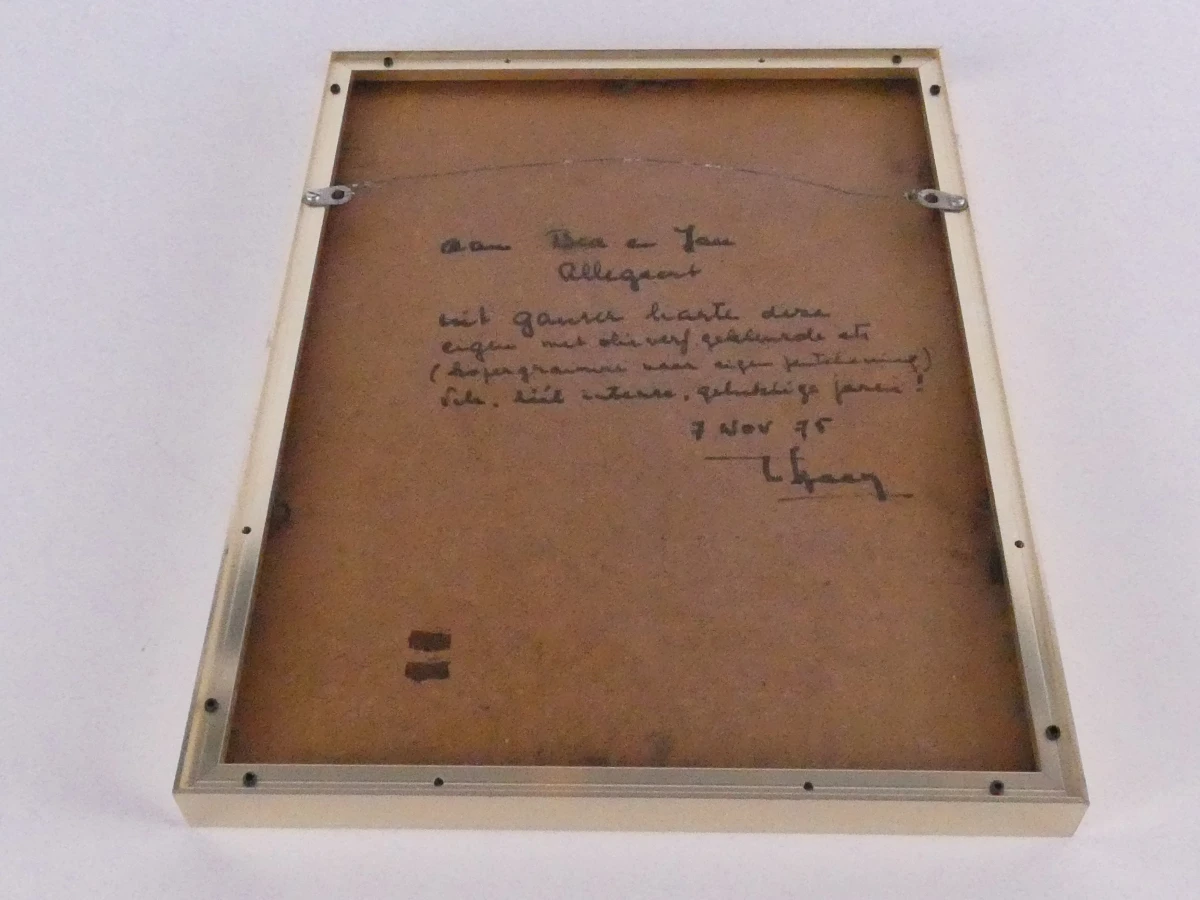 aan Bea en Jan
Allegaert
uit ganser harte deze
eigen met olieverf gekleurde ets
(kopergravure naar eigen pentekening)
Vele, intense, gelukkige jaren!
7 Nov 75